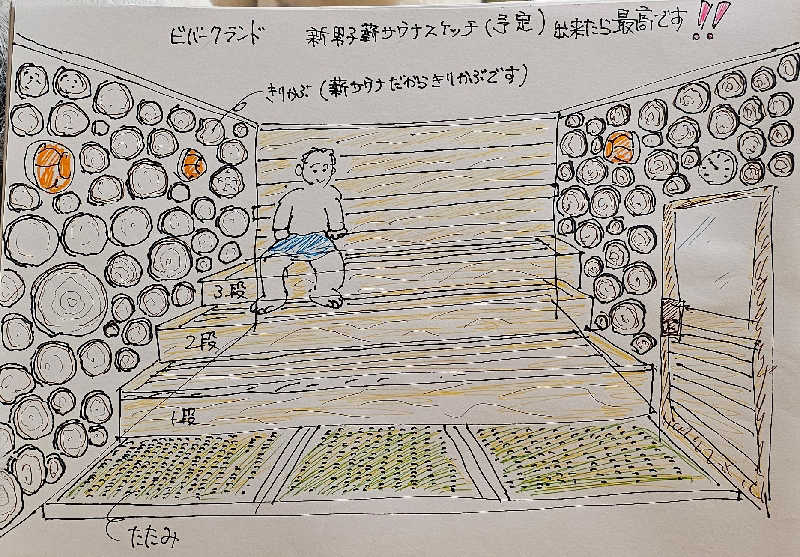 ビバークランド 新男子薪サウナスケッチ(予定) 出来たら最高です!!
きりかぶ (薪サウナだからきりかぶです)
3段
2段
1段
たたみ